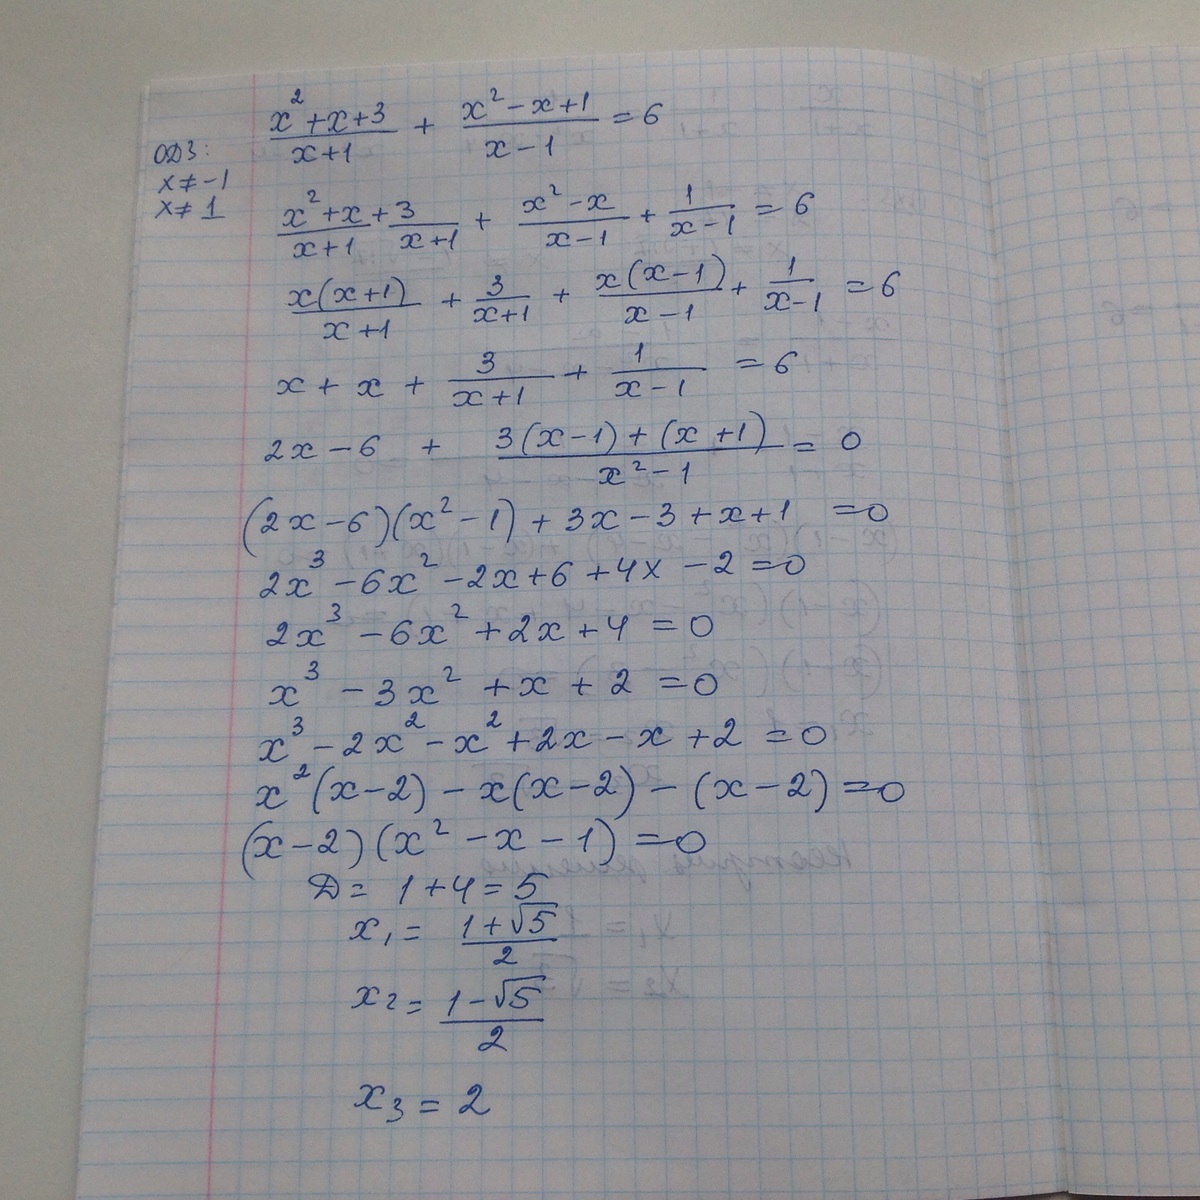 (x²+x+3)/(x+1) + (x²-x+1)/(x-1) = 6
ОДЗ:
x ≠ -1
x ≠ 1
(x²+x)/(x+1) + 3/(x+1) + (x²-x)/(x-1) + 1/(x-1) = 6
x(x+1)/(x+1) + 3/(x+1) + x(x-1)/(x-1) + 1/(x-1) = 6
x + x + 3/(x+1) + 1/(x-1) = 6
2x - 6 + (3(x-1)+(x+1))/(x²-1) = 0
(2x-6)(x²-1) + 3x - 3 + x + 1 = 0
2x³ - 6x² - 2x + 6 + 4x - 2 = 0
2x³ - 6x² + 2x + 4 = 0
x³ - 3x² + x + 2 = 0
x³ - 2x² - x² + 2x - x + 2 = 0
x²(x-2) - x(x-2) - (x-2) = 0
(x-2)(x² - x - 1) = 0
D = 1 + 4 = 5
x₁ = (1+√5)/2
x₂ = (1-√5)/2
x₃ = 2